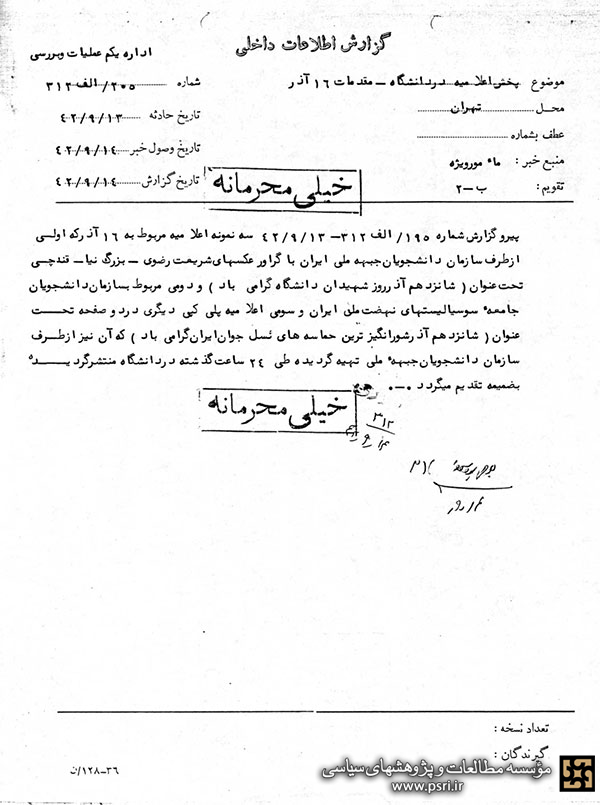 گزارش اطلاعات داخلی
اداره یکم عملیات وبررسی
موضوع پخش اعلامیه دردانشگاه – مقدمات ۱۶ آذر
شماره ۲۰۵/ الف ۳۱۲
محل: تهران
تاریخ حادثه ۴۲/۹/۱۳
عطف بشماره
تاریخ وصول خبر ۴۲/۹/۱۴
منبع خبر: مامورویژه
تاریخ گزارش ۴۲/۹/۱۴
تقویم: ب-۲
خیلی محرمانه
پیرو گزارش شماره ۱۹۵/ الف ۳۱۲–۴۲/۹/۱۳ سه نمونه اعلامیه مربوط به ۱۶ آذرکه اولی
ازطرف سازمان دانشجویان جبهه ملی ایران با گراور عکسهای شریعت رضوی – بزرگ نیا– قندچی
تحت عنوان ( شانزدهم آذر روز شهیدان دانشگاه گرامی باد ) و دومی مربوط بسازمان دانشجویان
جامعه سوسیالیستهای نهضت ملی ایران و سومی اعلامیه پلی کپی دیگری در دو صفحه تحت
عنوان ( شانزدهم آذر شورانگیز ترین حماسه های نسل جوان ایران گرامی باد ) که آن نیز ازطرف
سازمان دانشجویان جبهه ملی تهیه گردیده طی ۲۴ ساعت گذشته دردانشگاه منتشرگردیده
بضمیمه تقدیم میگردد ۰-۰
خیلی محرمانه
۳۱۲
تعداد نسخه :
گیرندگان :
۳۶-۱۲۸/ن
مؤسسه مطالعات و پژوهشهای سیاسی
www.psri.ir